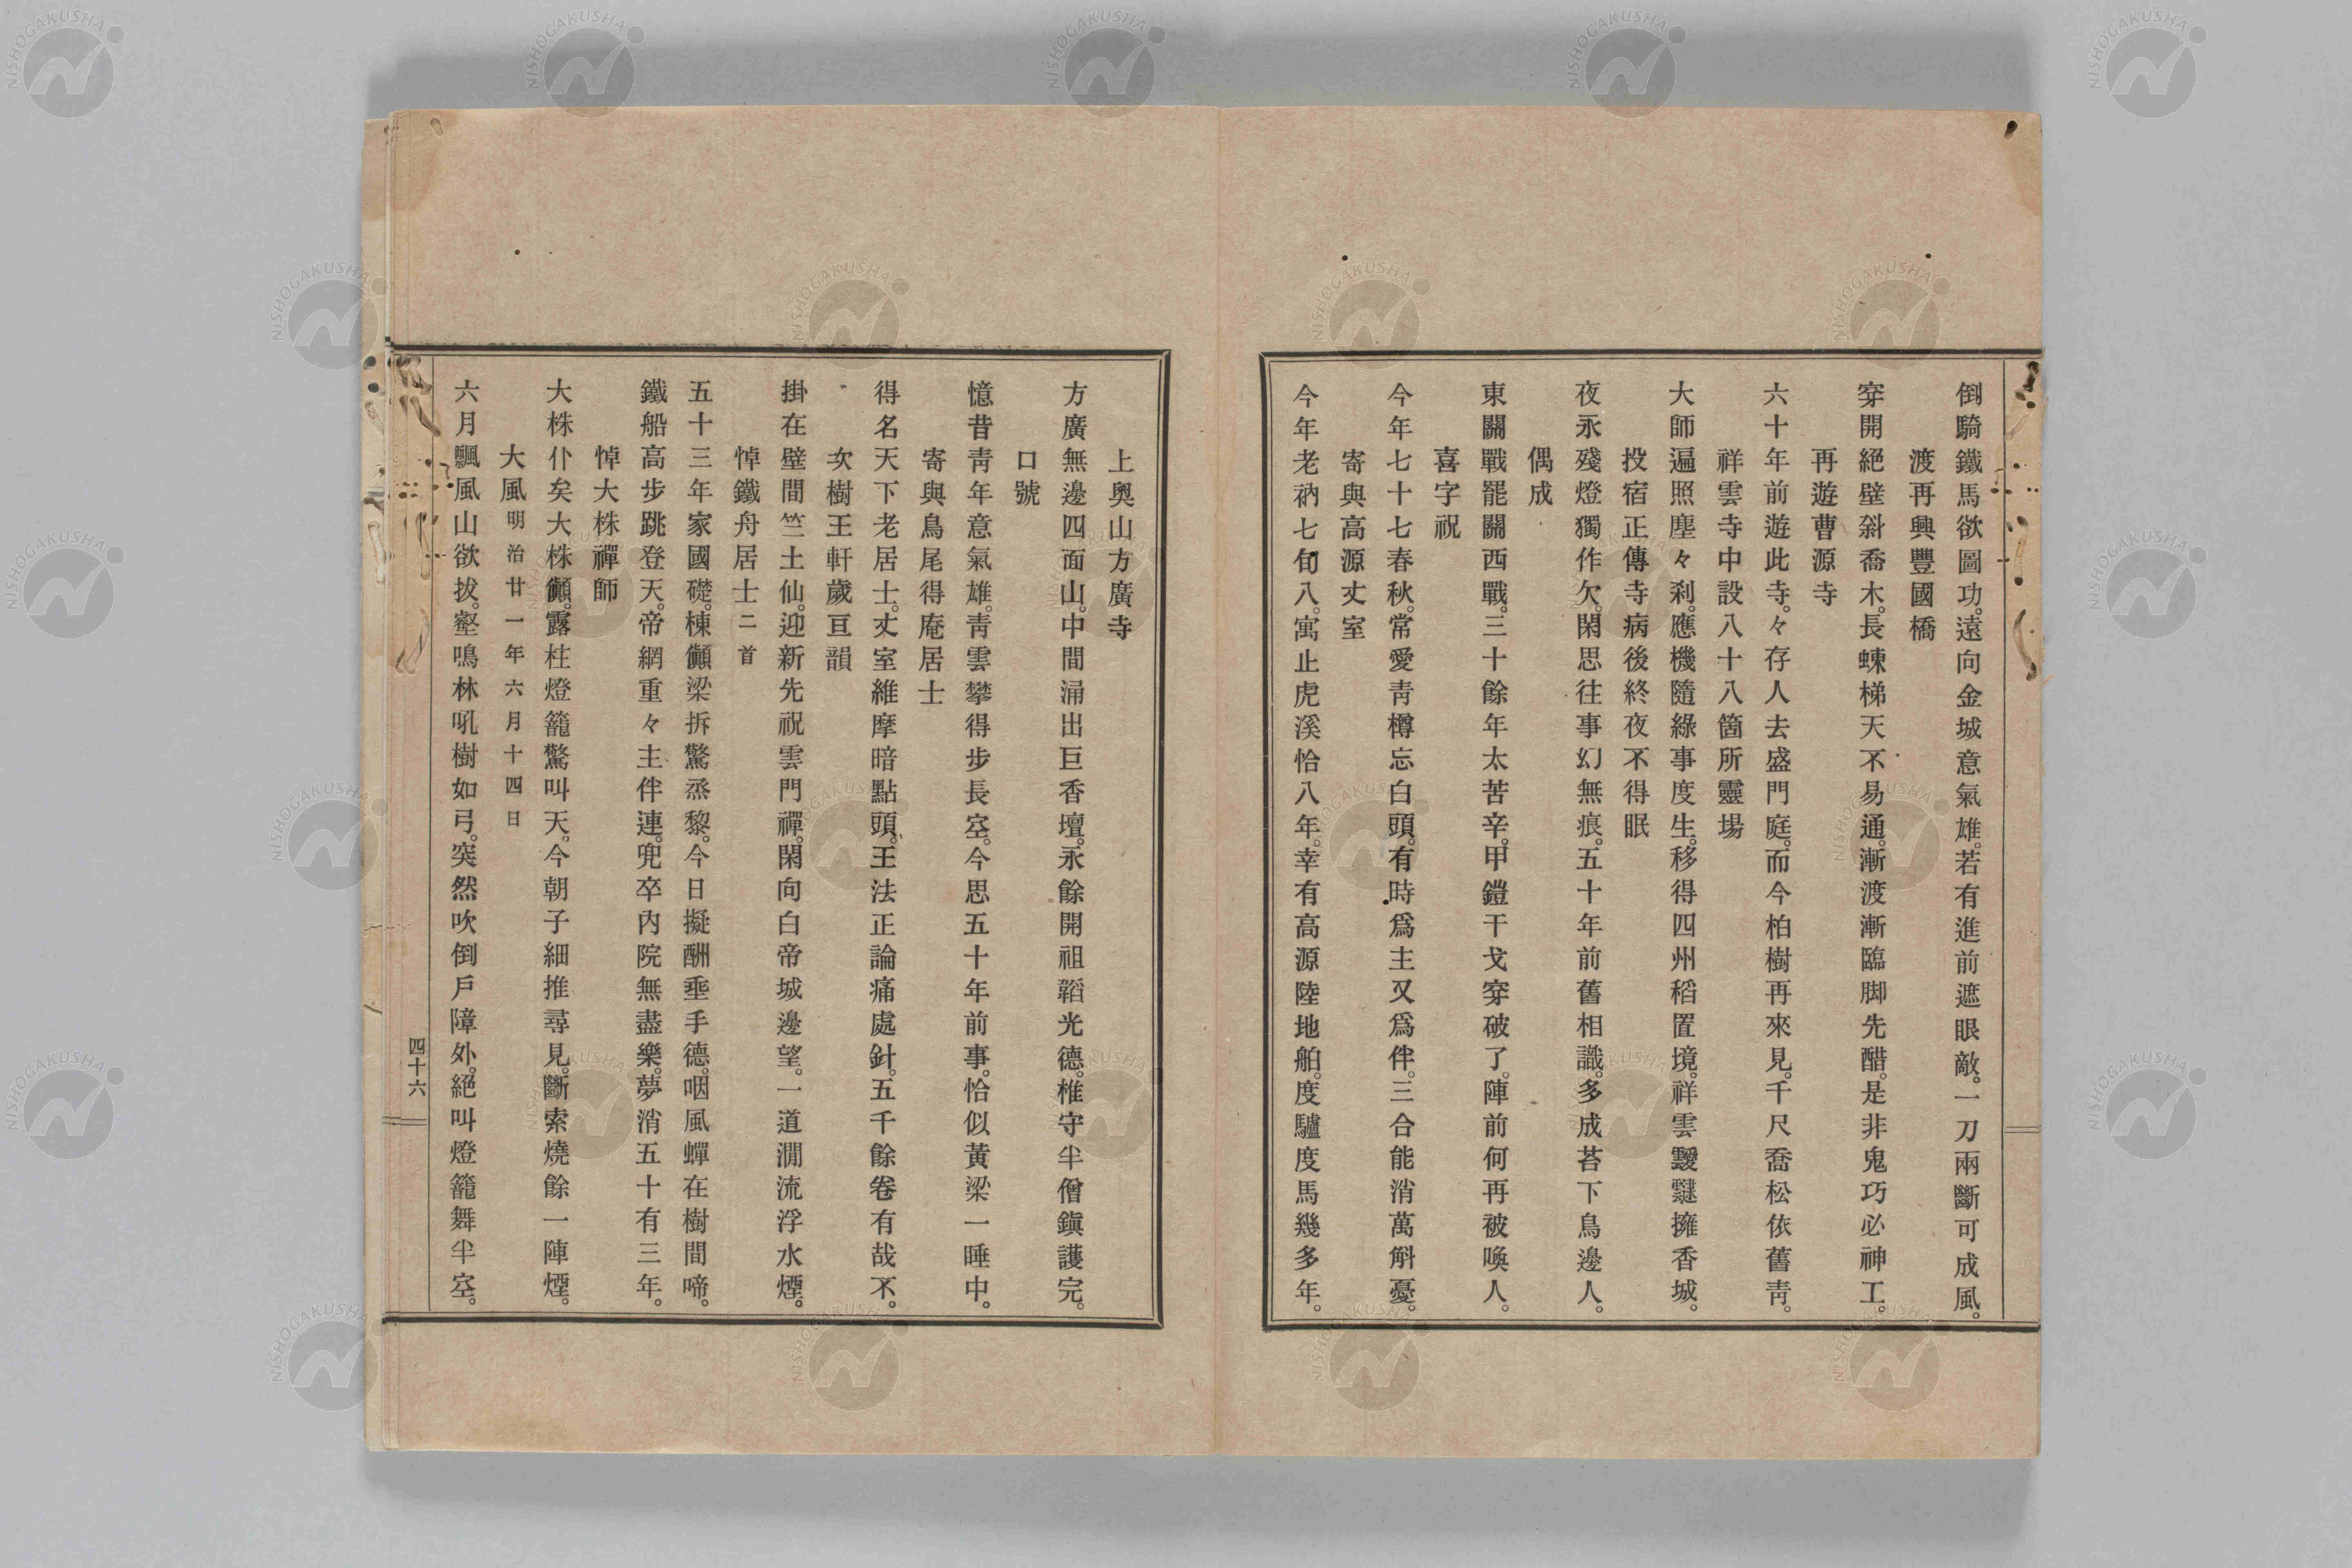 倒騎鐵馬欲圖功。遠向金城意氣雄。若有進前遮眼敵。一刀兩斷可成風。
渡再興豐國橋
穿開絕壁斜喬木。長蝀梯天不易通。漸渡漸臨脚先醋。是非鬼巧必神工。
再遊曹源寺
六十年前遊此寺。々存人去盛門庭。而今柏樹再來見。千尺喬松依舊靑。
祥雲寺中設八十八箇所靈場
大師遍照塵々刹。應機隨綠事度生。移得四州稻置境。祥雲靉靆擁香城。
投宿正傳寺病後終夜不得眠
夜永殘燈獨作欠。閑思往事幻無痕。五十年前舊相識。多成苔下鳥邊人。
偶成
東關戰罷關西戰。三十餘年太苦辛。甲鎧干戈穿破了。陣前何再被喚人。
喜字祝
今年七十七春秋。常愛靑樽忘白頭。有時爲主又爲伴。三合能消萬斛憂。
寄與高源丈室
今年老衲七旬八。寓止虎溪恰八年。幸有高源陸地舶。度驢度馬幾多年。
上奧山方廣寺
方廣無邊四面山。中間涌出巨香壇。永餘開祖韜光德。椎守半僧鎭護完。
口號
憶昔靑年意氣雄。靑雲攀得步長空。今思五十年前事。恰似黃梁一睡中。
寄與鳥尾得庵居士
得名天下老居士。丈室維摩暗點頭。王法正論痛處針。五千餘卷有哉不。
次樹王軒歲亘韻
掛在壁間竺土仙。迎新先祝雲門禪。閑向白帝城邊望。一道澗流浮水煙。
悼鐵舟居士二首
五十三年家國礎。棟顚梁拆驚烝黎。今日擬酬垂手德。咽風蟬在樹間啼。
鐵船高步跳登天。帝網重々主伴連。兜卒內院無盡樂。夢消五十有三年。
悼大株禪師
大株仆矣大株顚。露柱燈籠驚叫天。今朝子細推尋見。斷索燒餘一陣煙。
大風明治廿一年六月十四日
六月飄風山欲拔。壑鳴林吼樹如弓。突然吹倒戶障外。絕叫燈籠舞半空。
四十六
NISHOGAKUSHA